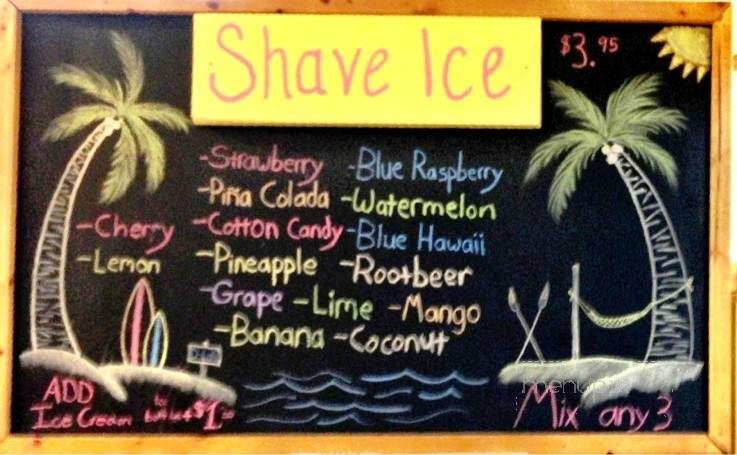 Shave Ice
$3.95
-Strawberry -Blue Raspberry
-Piña Colada -Watermelon
-Cherry -Cotton Candy -Blue Hawaii
-Lemon -Pineapple -Rootbeer
-Grape -Lime -Mango
-Banana -Coconut
ADD
Ice Cream to $1.00
Mix any 3
menupix